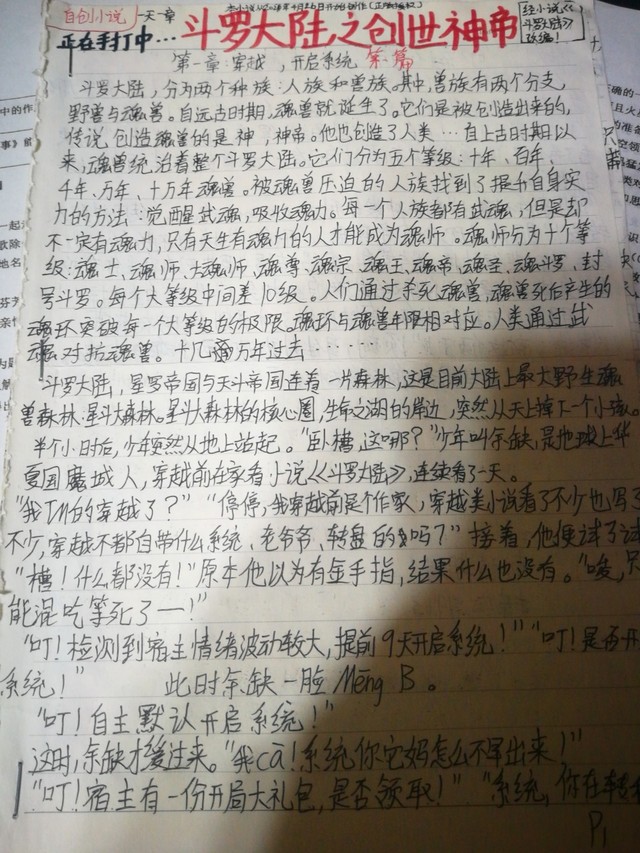 自创小说 一天一章
本小说以2020年4月26日开始创作(正版授权)
正在手打中… 斗罗大陆之创世神帝
经小说《斗罗大陆》改编!
第一章:穿越,开启系统 第一篇
斗罗大陆,分为两个种族:人族和兽族。其中,兽族有两个分支,
野兽与魂兽。自远古时期,魂兽就诞生了。它们是被创造出来的,
传说,创造魂兽的是神,神帝。他也创造了人类…自上古时期以
来,魂兽统治着整个斗罗大陆。它们分为五个等级:十年、百年、
千年、万年、十万年魂兽。被魂兽压迫的人族找到了提升自身实
力的方法:觉醒武魂,吸收魂力。每一个人族都有武魂,但是却
不一定有魂力,只有天生有魂力的人才能成为魂师。魂师分为十个等
级:魂士、魂师、大魂师、魂尊、魂宗、魂王、魂帝、魂圣、魂斗罗、封
号斗罗。每个大等级中间差10级。人们通过杀死魂兽,魂兽死后产生的
魂环突破每一个大等级的极限。魂环与魂兽年限相对应。人类通过武
魂对抗魂兽。十几万年过去……
斗罗大陆,星罗帝国与天斗帝国连着一片森林,这是目前大陆上最大野生魂
兽森林·星斗大森林。星斗大森林的核心圈,生命之湖的岸边,突然从天上掉下一个小孩。
半个小时后,少年突然从地上站起。“卧槽,这哪?”少年叫余缺,是地球上华
夏国魔城人,穿越前在家看小说《斗罗大陆》,连续看了一天。
“我TM的穿越了?”“停停,我穿越前是个作家,穿越类小说看了不少也写了
不少,穿越不都自带什么系统、老爷爷、转盘的吗?”接着,他便试了试
“槽!什么都没有!”原本他以为有金手指,结果什么也没有。“唉,只
能混吃等死了—!”
“叮!检测到宿主情绪波动较大,提前9天开启系统!”“叮!是否开
系统!” 此时余缺一脸Mēng B。
“叮!自主默认开启系统!”
这时,余缺才缓过来。“我cā!系统你它妈怎么不早出来!”
“叮!宿主有一份开局大礼包,是否领取!”“系统,你在转
P1